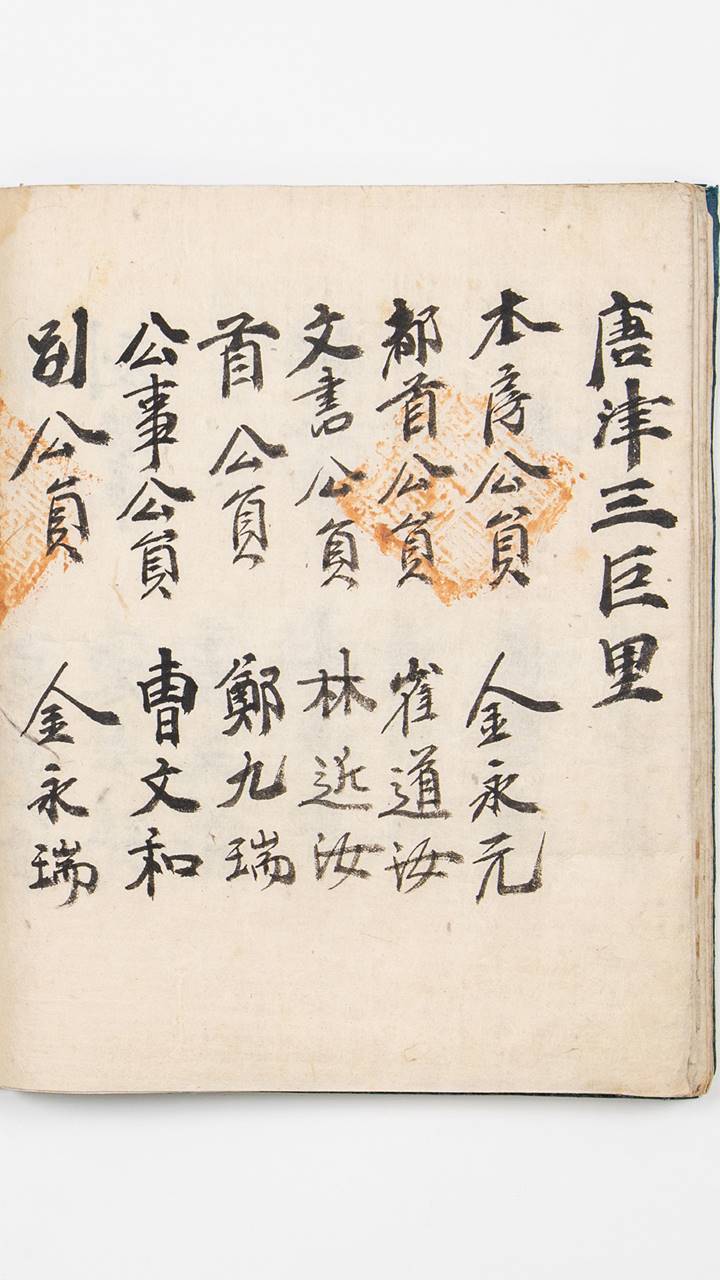 唐津三巨里
本房公員 金永元
都首公員 崔道汝
文書公員 林汝
首公員 鄭九瑞
公事公員 曺文和
別公員 金永瑞